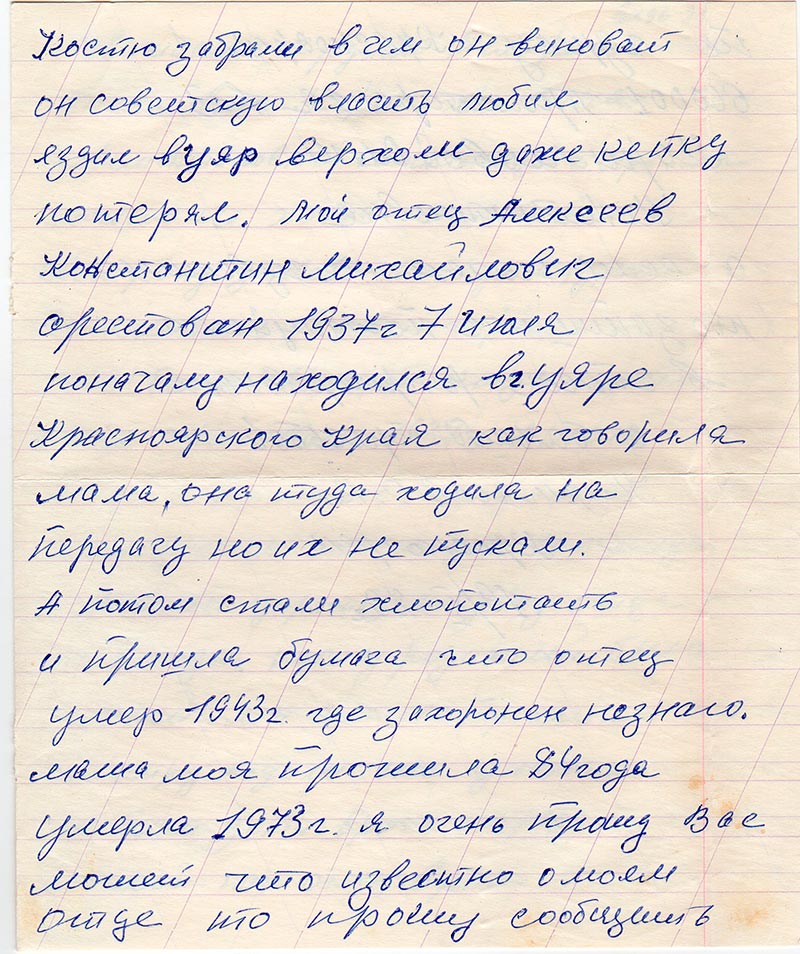 Костю забрали в чем он виноват
он советскую власить любил
ездил в уяр верхом даже кепку
потерял. Мой отец Алексеев
Константин Михайлович
орестован 1937г 7 июля
поначалу находился в г. уяре
Красноярского Края как говорила
мама, она туда ходила на
передачу но их не пускали.
А потом стали хлопотать
и пришла бумага что отец
умер 1943г. где захоронен незнаю.
мама моя прожила 84 года
умерла 1973г. я очень прошу Вас
может что известно о моем
отце то прошу сообщить